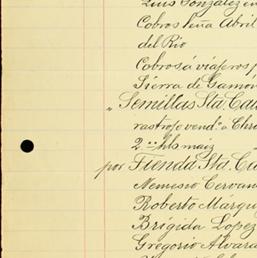 Luis Gonzalez en
Cobros Leña Abril
del Rio
Cobros á viajeros p
Sierra de Gamón
" Semillas Sta. Ca
rastrojo vend. a Chr
2 Hls maiz
por Tienda Sta. Ca
Nemesio Cervan
Roberto Marqu
Brigida Lopez
Gregorio Alvara